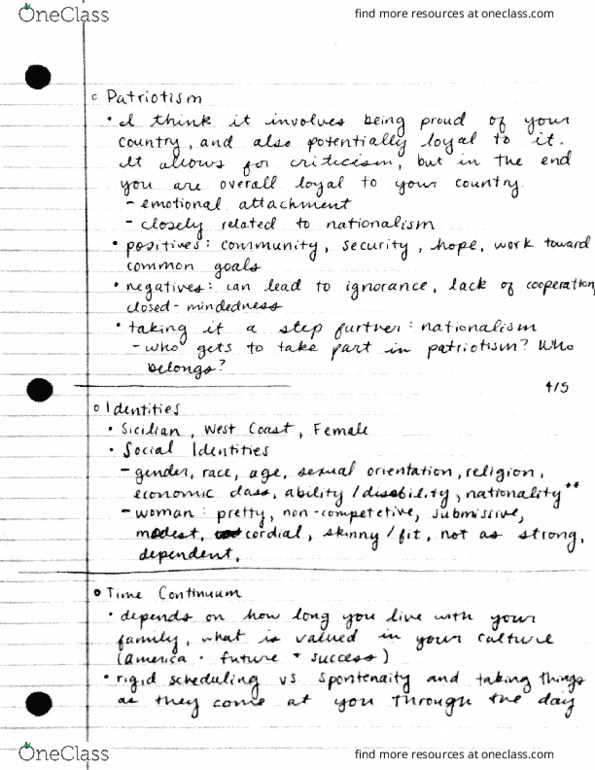 OneClass
find more resources at oneclass.com
Patriotism
• I think it involves being proud of your
country, and also potentially loyal to it.
It allows for criticism, but in the end
you are overall loyal to your country.
- emotional attachment
- closely related to nationalism
• positives: community, security, hope, work toward
common goals
• negatives: can lead to ignorance, lack of cooperation,
closed-mindedness
• taking it a step further: nationalism
- who gets to take part in patriotism? Who
belongs?
4/5
Identities
• Sicilian, West Coast, Female
• Social Identities
- gender, race, age, sexual orientation, religion,
economic class, ability/disability, nationality**
- woman: pretty, non-competetive, submissive,
modest, cordial, skinny/fit, not as strong,
dependent,
Time Continuum
• depends on how long you live with your
family, what is valued in your culture
(America · future + success)
• rigid scheduling vs spontenaity and taking things
as they come at you through the day
OneClass
find more resources at oneclass.com